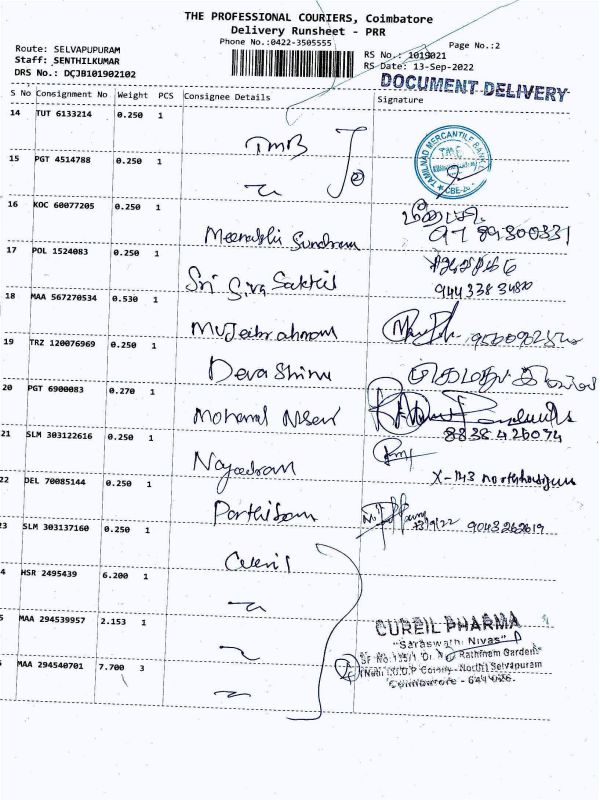 THE PROFESSIONAL COURIERS, Coimbatore
Delivery Runsheet - PRR
Phone No.:0422-3505555
Page No.:2
Route: SELVAPUPURAM
Staff: SENTHILKUMAR
DRS No.: DCJB101902102
RS No.: 1019021
RS Date: 13-Sep-2022
DOCUMENT DELIVERY
S No Consignment No Weight PCS Consignee Details Signature
14 TUT 6133214 0.250 1
TMB
TAMILNAD MERCANTILE BANK
TMB
CBE
15 PGT 4514788 0.250 1
2
16 KOC 60077205 0.250 1
Meenakshi Sundram
17 POL 1524083 0.250 1
Sri Siva Sakthi
18 MAA 567270534 0.530 1
Mujeebrahmam
19 TRZ 120076969 0.250 1
Devashinu
20 PGT 6900083 0.270 1
8838 426074
21 SLM 303122616 0.250 1
X-143
22 DEL 70085144 0.250 1
Parthiban
13/9/22 9043262619
23 SLM 303137160 0.250 1
Cureil
4 HSR 2495439 6.200 1
5 MAA 294539957 2.153 1
CUREIL PHARMA
"Saraswathi Nivas"
Rathinam Gardens
Colony - North Selvapuram
Coimbatore -
MAA 294540701 7.700 3